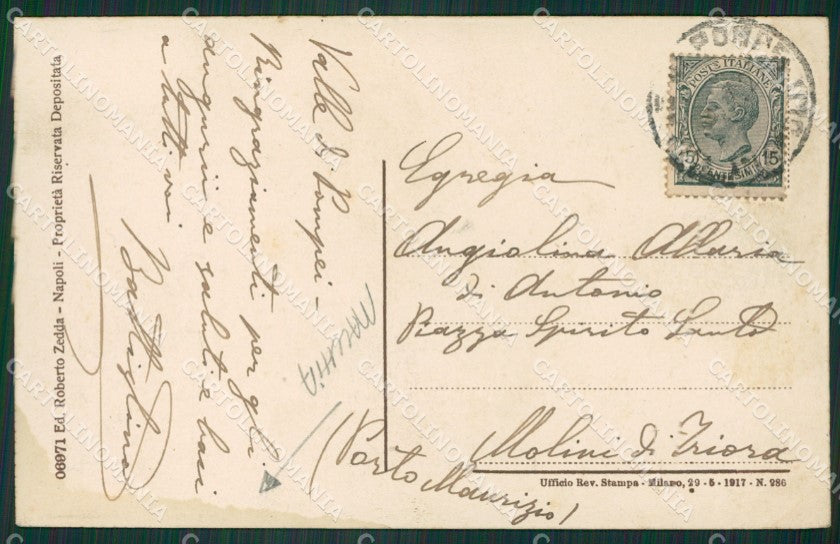 06971 Ed. Roberto Zedda - Napoli - Proprietà Riservata Depositata
Valle di Pompei -
Ringraziamenti per gli
augurii e saluti e baci
a tutti voi.
POSTE ITALIANE
15 15
CENTESIMI
Egregia
Angiolina Allaria
di Antonio
Piazza Spirito Santo
Molini di Triora
(Porto
Maurizio)
Ufficio Rev. Stampa - Milano, 29 - 5 - 1917 - N. 286
CARTOLINOMANIA